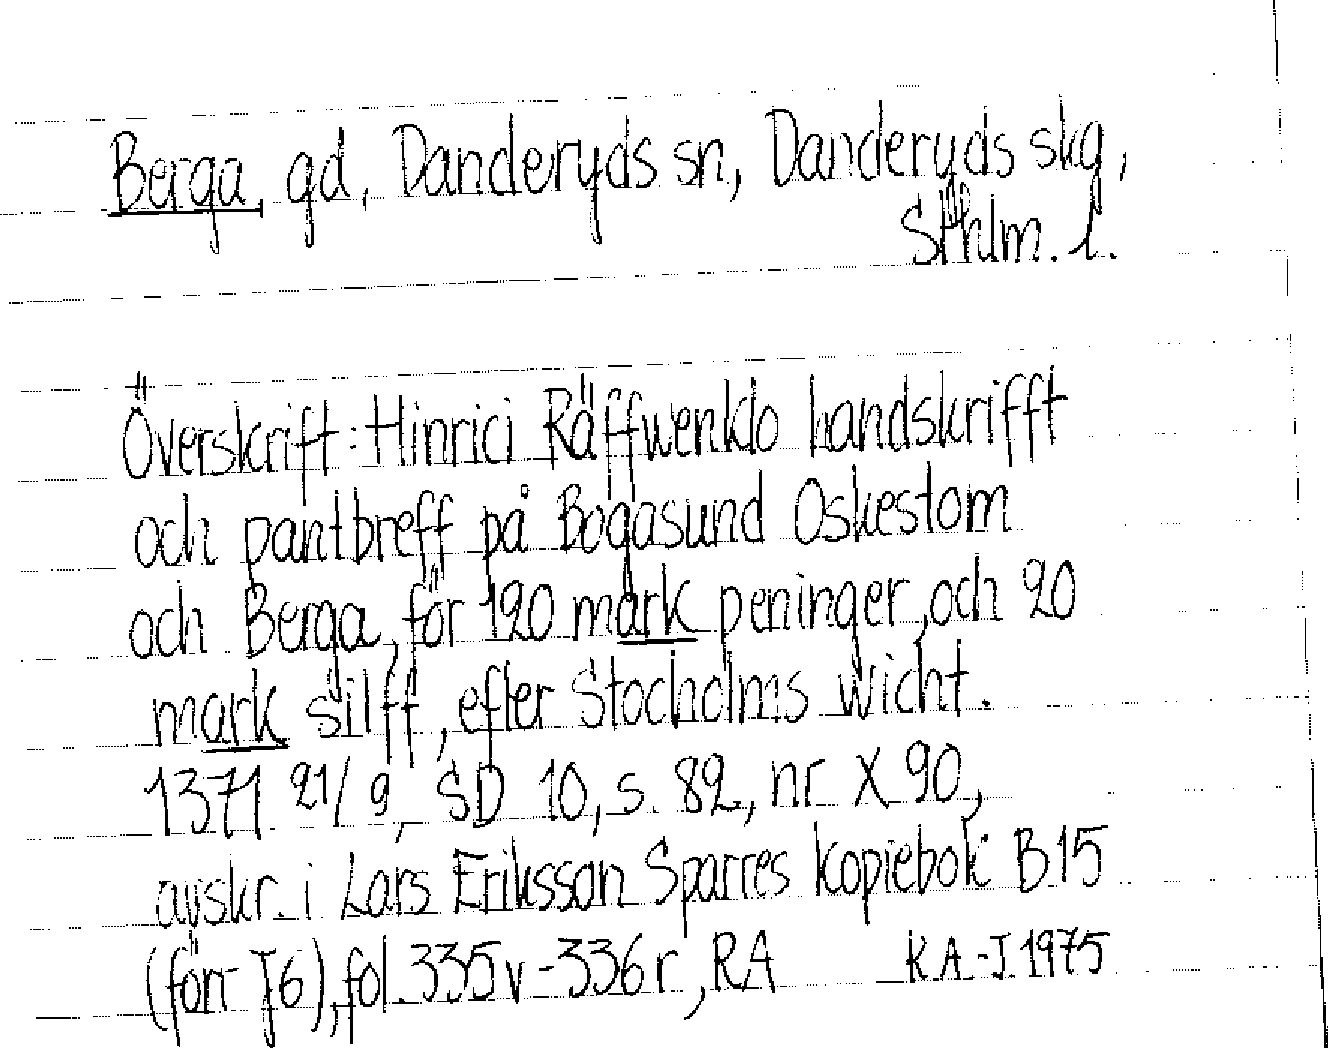 Berga, gd, Danderyds sn, Danderyds skg,
Sthlm. l.
Överskrift: Hinrici Räffwenklo handskrifft
och pantbreff på Bogasund Oskestom
och Berga, för 120 mark peninger, och 20
mark silff, efter Stocholms wicht.
1371 21/9, SD 10, s. 82, nr X 90,
avskr. i Lars Eriksson Sparres kopiebok B 15
(förr J6), fol. 335v-336r, RA K A-J 1975